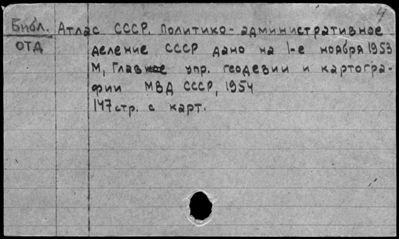 4
Библ. Атлас СССР. Политико-административное
ОТД деление СССР дано на 1-е ноября 1953
М, Главное упр. геодезии и картогра-
фии МВД СССР, 1954
147 стр. с карт.